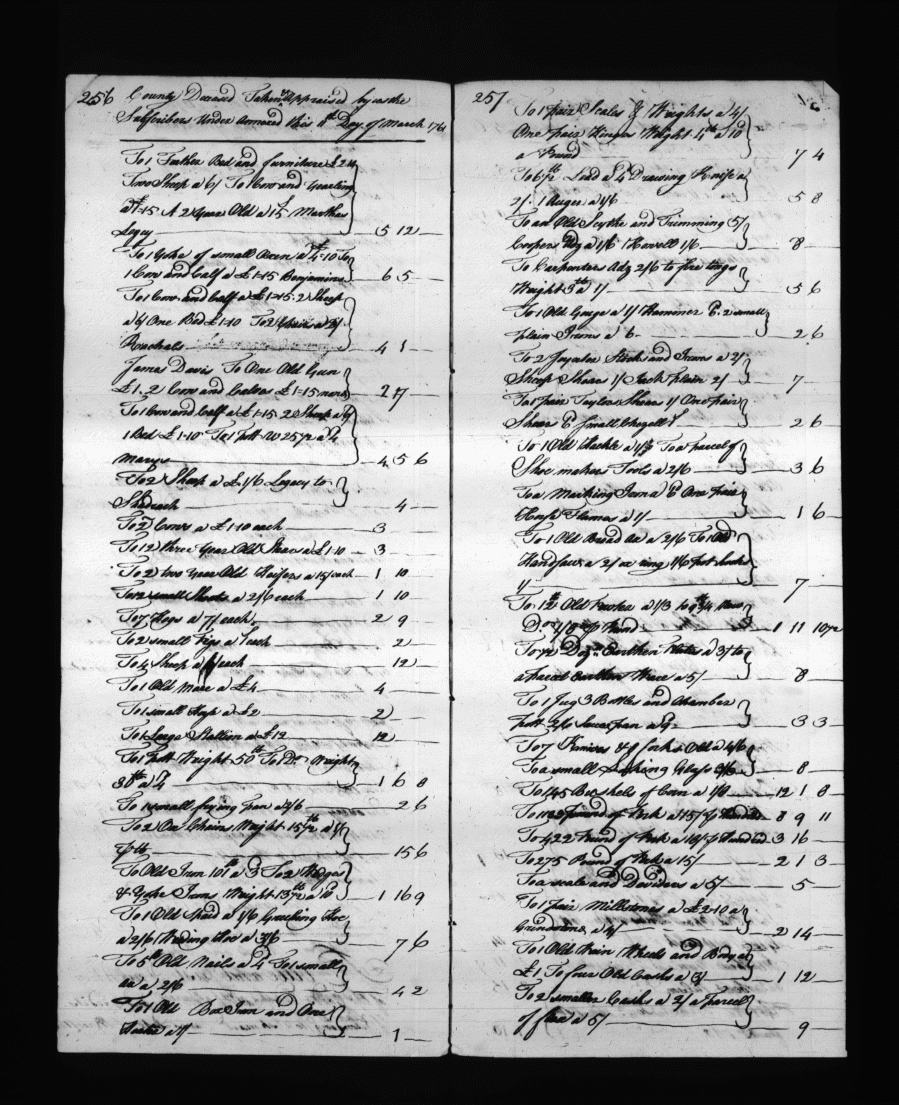 256 County Deceased Taken & Appraised by us the
Subscribers Under Annexed this 11th Day of March 1761
To 1 Feather Bed and furniture
Two Sheep a 6/ To 1 Cow and yearling
a £1-15 A 2 year Old a 15/ Marthas
Legcy 5 12
To 1 Yoke of small Oxen a £4-10 To
1 Cow and Calf a £1-15 Benjamins 6 5
To 1 Cow and Calf a £1-15 2 Sheep
a 6/ One Bed £1-10 To 2 Chairs a
Rachels 4 1
James Davis To One Old Gun
£1. 2 Cows and Calves £1-15 2 17
To 1 Cow and Calf a £1-15 2 Sheep a 6/
1 Bed £1-10 To 1 Pott W 25 1/2 a 4
Marys 4 5 6
To 2 Sheep a £ 1/6 Legacy to
4
To 2 Cows a £1-10 each 3
To 2 three year Old Steers a £1-10 3
To 2 two year Old Heifers a 15/ each 1 10
To 12 small Shoats a 2/6 each 1 10
To 7 Hogs a 7/ each 2 9
To 2 small Pigs a 1/ each 2
To 4 Sheep a each 12
To 1 Old Mare a £4 4
To 1 small Horse a £2 2
To 1 Large Stallion a £12 12
To 1 Pott Weight 50 lb To 1 Do Weight
30 lb a 4 1 6 8
To 1 small frying Pan a 2/6 2 6
To 2 Ox Chains Weight 15 1/2 lb a 1/
p lb 15 6
To Old Iron 101 lb a 3 To 2 Wedges
& Yoke Irons Weight 13 1/2 lb a 10 1 16 9
To 1 Old Spad a 1/6 Grubing Hoe
a 2/6 1 Weding Hoe a 3/6 7 6
To 5 lb Old Nails a 4 To 1 small
ax a 2/6 4 2
To 1 Old Box Iron and One
a 1/ 1
257
To 1 pair Scales & Weights a 4/
One pair Hinges Weight 4 lb a 10
a 7 4
To 6 1/2 lb Lead a 4 Drawing Knife a
2/. 1 Auger a 1/6 5 8
To an Old Scythe and Trimming 5/
Coopers Adz a 1/6 1 Howell 1/6 8
To Carpenters Adz 2/6 to fire tongs
Weight 3 lb a 1/ 5 6
To 1 Old Gauge a 1/ 1 Hammer & 2 small
plain Irons a 6 2 6
To 2 Joynter Stocks and Irons a 2/
Sheep Shears 1/ Jack plain 2/ 7
To 1 pair Taylors Shears 1/ One pair
Shears & small Chizell 2 6
To 1 Old Hackle a 1/ To a parcel of
Shoe makers Tools a 2/6 3 6
To a Marking Iron & One pair
Horse Fleames a 1/ 1 6
To 1 Old Broad ax a 2/6 To 1 Old
Handsaw a 2/ ox ring 1/6 pot hooks
1/ 7
To 12 lb Old Pewter a 1/3 to 9 3/4 New
Do 1/8 p Pound 1 11 10 1/2
To 1/2 Doz. Earthen Plates a 3/ to
a parcel Earthen Ware a 5/ 8
To 1 Jug 3 Bottles and Chamber
pott 2/6 Saucepan a 9 3 3
To 7 Knives & 9 forks Old a 4/6
To a small Looking Glass 3/6 8
To 145 Bushels of Corn a 1/8 12 1 8
To 1133 pound of Pork a 15/ p hundred 8 9 11
To 422 Pound of Pork a 18/ p Hundred 3 16
To 275 Pound of Pork a 15/ 2 1 3
To a scale and Deviders a 5/ 5
To 1 pair Millstones a £2-10 a
Grindstone a 4/ 2 14
To 1 Old Wain Wheels and Body a
£1 To four Old Casks a 3/ 1 12
To 2 smaller Casks a 2/ a parcel
of flax a 5/ 9